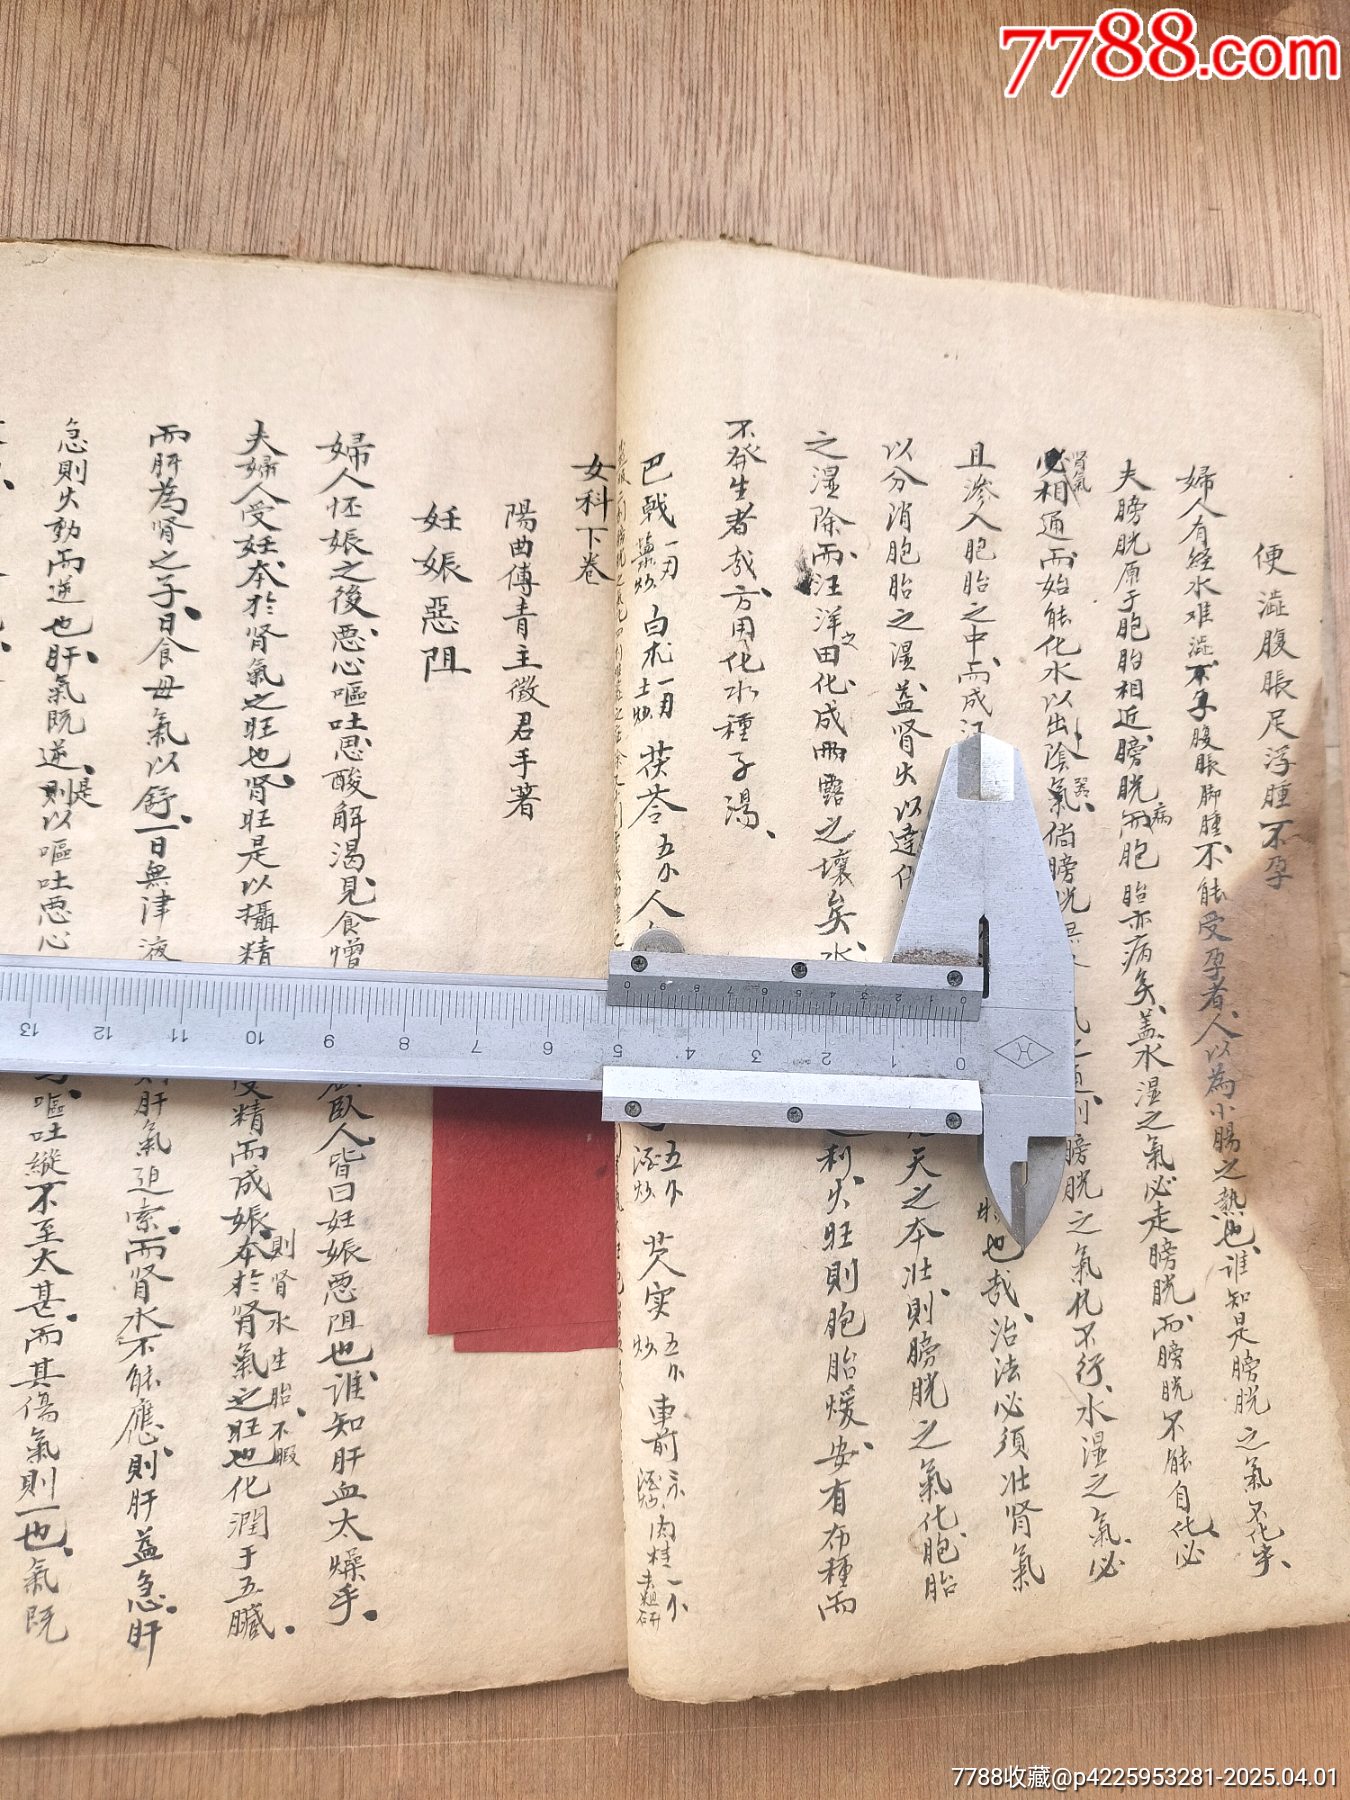 7788.com
便澁腹脹足浮腫不孕
婦人有經水难澁不孕腹脹脚腫不能受孕者人以為小腸之熱也谁知是膀胱之氣不化乎
夫膀胱原于胞胎相近膀胱病而胞胎亦病矣盖水湿之氣必走膀胱而膀胱不能自化必
腎氣相通而始能化水以出陰器倘膀胱
之道則膀胱之氣化不行水湿之氣必
且滲入胞胎之中而成汪
也哉治法必須壯肾氣
以分消胞胎之湿益肾火以達化
天之本壮則膀胱之氣化胞胎
之湿除而汪洋之田化成雨露之壤矣水
利火旺則胞胎煖安有布種而
不發生者哉方用化水種子湯
巴戟一刃 塩炒 白术一刃 土炒 茯苓 五分 人
五分 酒炒 芡实 五分 炒 車前 二分 酒炒 肉桂 一分 去粗研
女科下巻
陽曲傅青主徵君手著
妊娠惡阻
婦人怀娠之後恶心嘔吐思酸解渴見食憎
臥人皆曰妊娠恶阻也谁知肝血太燥乎
夫婦人受妊本於肾氣之旺也肾旺是以攝精
受精而成娠本於肾氣之旺也化潤于五臟
則肾水生胎不暇
而肝為肾之子日食母氣以舒一日無津液
則肝氣迫索而肾水不能應則肝益急肝
急則火動而逆也肝氣既逆是以嘔吐恶心
嘔吐縱不至太甚而其傷氣則一也氣既
0 1 2 3 4 5 6 7 8 9 10 11 12 13
0 1 2 3 4 5 6 7 8 9 0
7788收藏@p4225953281-2025.04.01